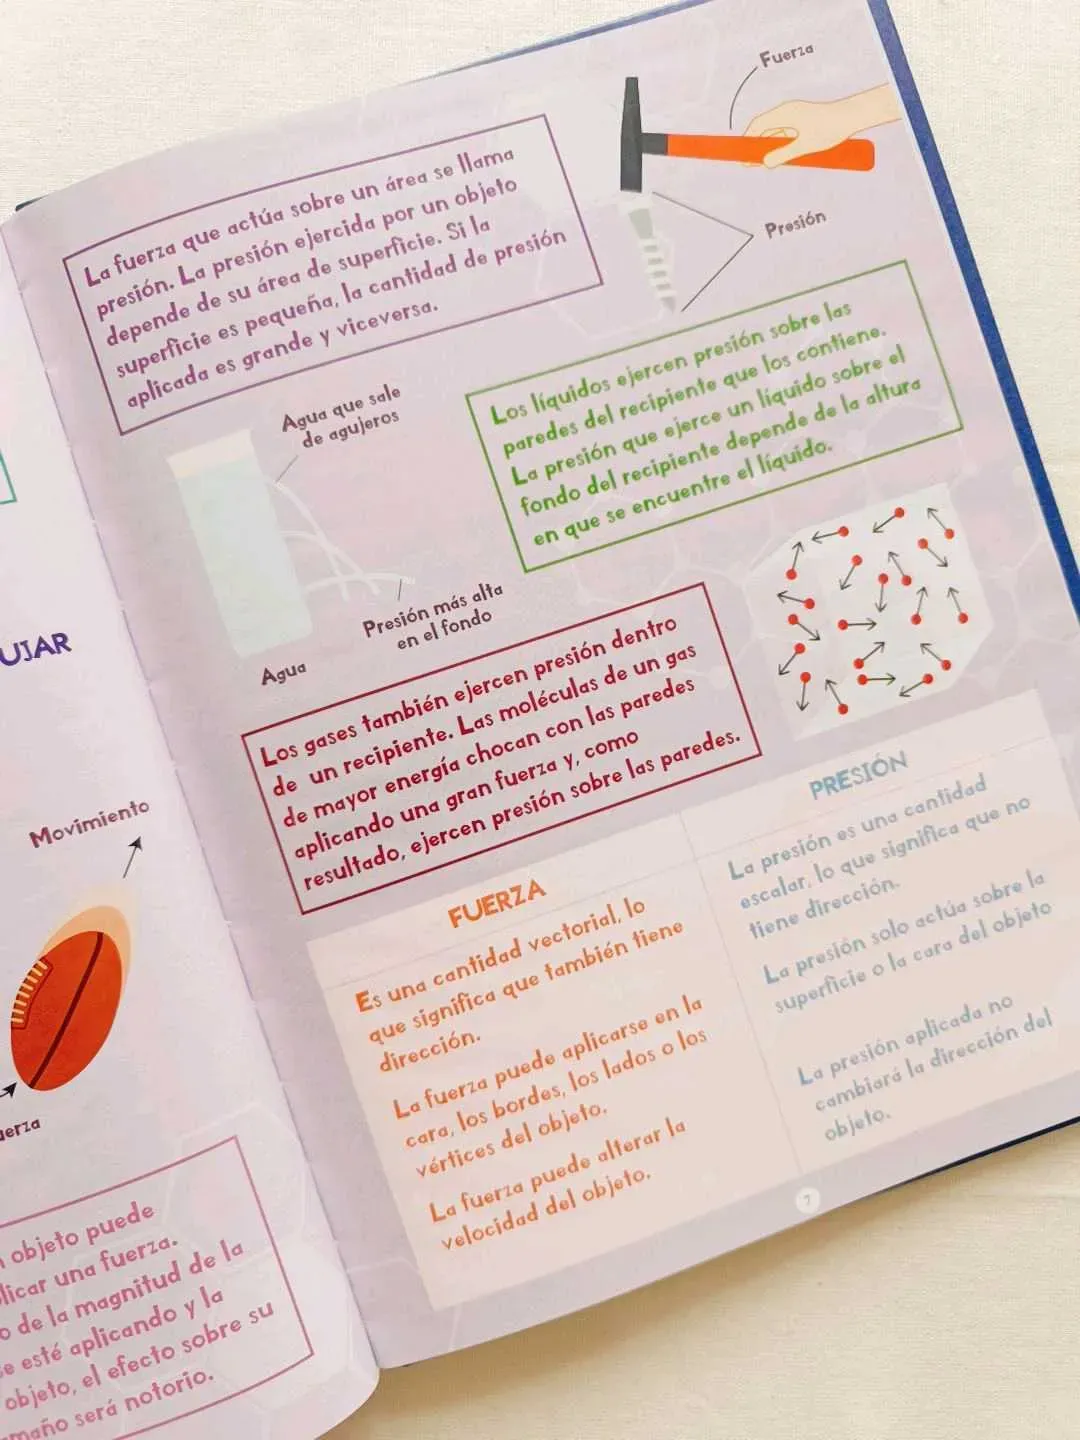 UJAR
Movimiento
objeto puede
licar una fuerza.
o de la magnitud de la
se esté aplicando y la
objeto, el efecto sobre su
maño será notorio.
Fuerza
Presión
La fuerza que actúa sobre un área se llama
presión. La presión ejercida por un objeto
depende de su área de superficie. Si la
superficie es pequeña, la cantidad de presión
aplicada es grande y viceversa.
Agua que sale
de agujeros
Presión más alta
en el fondo
Agua
Los líquidos ejercen presión sobre las
paredes del recipiente que los contiene.
La presión que ejerce un líquido sobre el
fondo del recipiente depende de la altura
en que se encuentre el líquido.
Los gases también ejercen presión dentro
de un recipiente. Las moléculas de un gas
de mayor energía chocan con las paredes
aplicando una gran fuerza y, como
resultado, ejercen presión sobre las paredes.
FUERZA
Es una cantidad vectorial, lo
que significa que también tiene
dirección.
La fuerza puede aplicarse en la
cara, los bordes, los lados o los
vértices del objeto.
La fuerza puede alterar la
velocidad del objeto.
PRESIÓN
La presión es una cantidad
escalar, lo que significa que no
tiene dirección.
La presión solo actúa sobre la
superficie o la cara del objeto
La presión aplicada no
cambiará la dirección del
objeto.
7